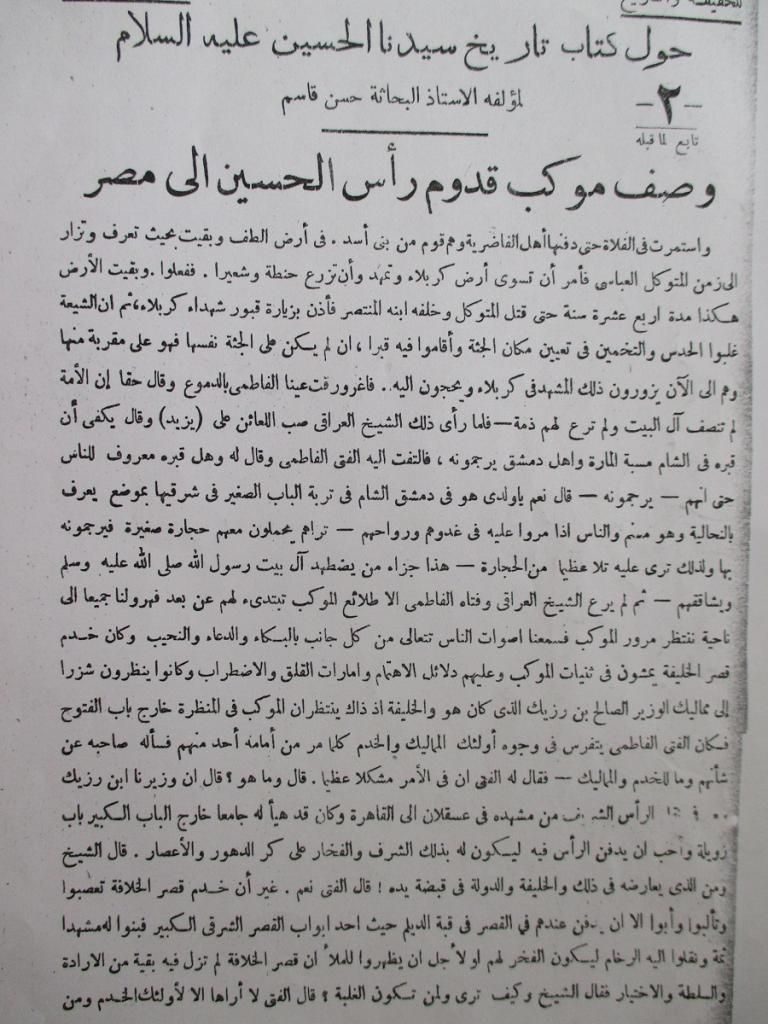 للحقيقة والتاريخ
حول كتاب تاريخ سيدنا الحسين عليه السلام
-٢-
لمؤلفه الاستاذ البحاثة حسن قاسم
تابع لما قبله
وصف موكب قدوم رأس الحسين الى مصر
واستمرت فى الفلاة حتى دفنها أهل الغاضرية وهم قوم من بنى أسد . فى أرض الطف وبقيت بحيث تعرف وتزار
الى زمن المتوكل العباسى فأمر أن تسوى أرض كربلاء وتمهد وأن تزرع حنطة وشعيرا . ففعلوا . وبقيت الأرض
هكذا مدة اربع عشرة سنة حتى قتل المتوكل وخلفه ابنه المنتصر فأذن بزيارة قبور شهداء كربلاء، ثم ان الشيعة
غلبوا الحدس والتخمين فى تعيين مكان الجثة وأقاموا فيه قبرا ، ان لم يكن على الجثة نفسها فهو على مقربة منها
وهم الى الآن يزورون ذلك المشهد فى كربلاء ويحجون اليه .. فاغرورقت عينا الفاطمى بالدموع وقال حقا إن الأمة
لم تنصف آل البيت ولم ترع لهم ذمة — فلما رأى ذلك الشيخ العراقى صب اللعائن على (يزيد) وقال يكفى أن
قبره فى الشام مسبة المارة واهل دمشق يرجمونه ، فالتفت اليه الفتى الفاطمى وقال له وهل قبره معروف للناس
حتى انهم — يرجمونه — قال نعم ياولدى هو فى دمشق الشام فى تربة الباب الصغير فى شرقيها بموضع يعرف
بالنحالية وهو مسنم والناس اذا مروا عليه فى غدوهم ورواحهم — تراهم يحملون معهم حجارة صغيرة فيرجمونه
بها ولذلك ترى عليه تلا عظيما من الحجارة — هذا جزاء من يضطهد آل بيت رسول الله صلى الله عليه وسلم
ويشاققهم — ثم لم يرع الشيخ العراقى وفتاه الفاطمى الا طلائع الموكب تبتدىء لهم عن بعد فهرولنا جميعا الى
ناحية ننتظر مرور الموكب فسمعنا اصوات الناس تتعالى من كل جانب بالبكاء والدعاء والنحيب وكان خدم
قصر الخليفة يمشون فى ثنيات الموكب وعليهم دلائل الاهتمام وامارات القلق والاضطراب وكانوا ينظرون شزرا
إلى مماليك الوزير الصالح بن رزيك الذى كان هو والخليفة اذ ذاك ينتظران الموكب فى المنظرة خارج باب الفتوح
فكان الفتى الفاطمى يتفرس فى وجوه أولئك المماليك والخدم كلما مر من أمامه أحد منهم فسأله صاحبه عن
شأنهم وما للخدم والمماليك — فقال له الفتى ان فى الأمر مشكلا عظيما . قال وما هو ؟ قال ان وزيرنا ابن رزيك
الرأس الشريف من مشهده فى عسقلان الى القاهرة وكان قد هيأ له جامعا خارج الباب الكبير باب
زويلة وأحب ان يدفن الرأس فيه ليكون له بذلك الشرف والفخار على كر الدهور والأعصار . قال الشيخ
ومن الذى يعارضه فى ذلك والخليفة والدولة فى قبضة يده ! قال الفتى نعم . غير أن خدم قصر الخلافة تعصبوا
وتألبوا وأبوا الا ان يدفن عندهم في القصر فى قبة الديلم حيث احد ابواب القصر الشرقى الكبير فبنوا له مشهدا
ثمة ونقلوا اليه الرخام ليكون الفخر لهم او لأجل ان يظهروا للملأ ان قصر الخلافة لم تزل فيه بقية من الارادة
والسلطة والاختيار فقال الشيخ وكيف ترى ولمن تكون الغلبة ؟ قال الفتى لا أراها الا لأولئك الخدم ومن